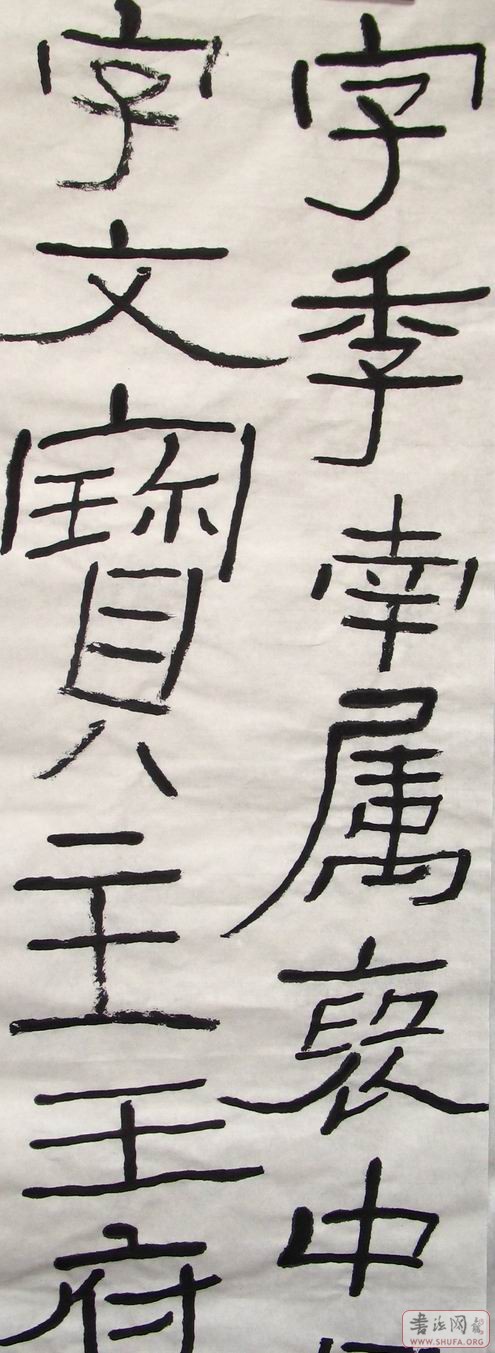 字季南属褒中
字文寶主王府
書法网
WWW.SHUFA.ORG